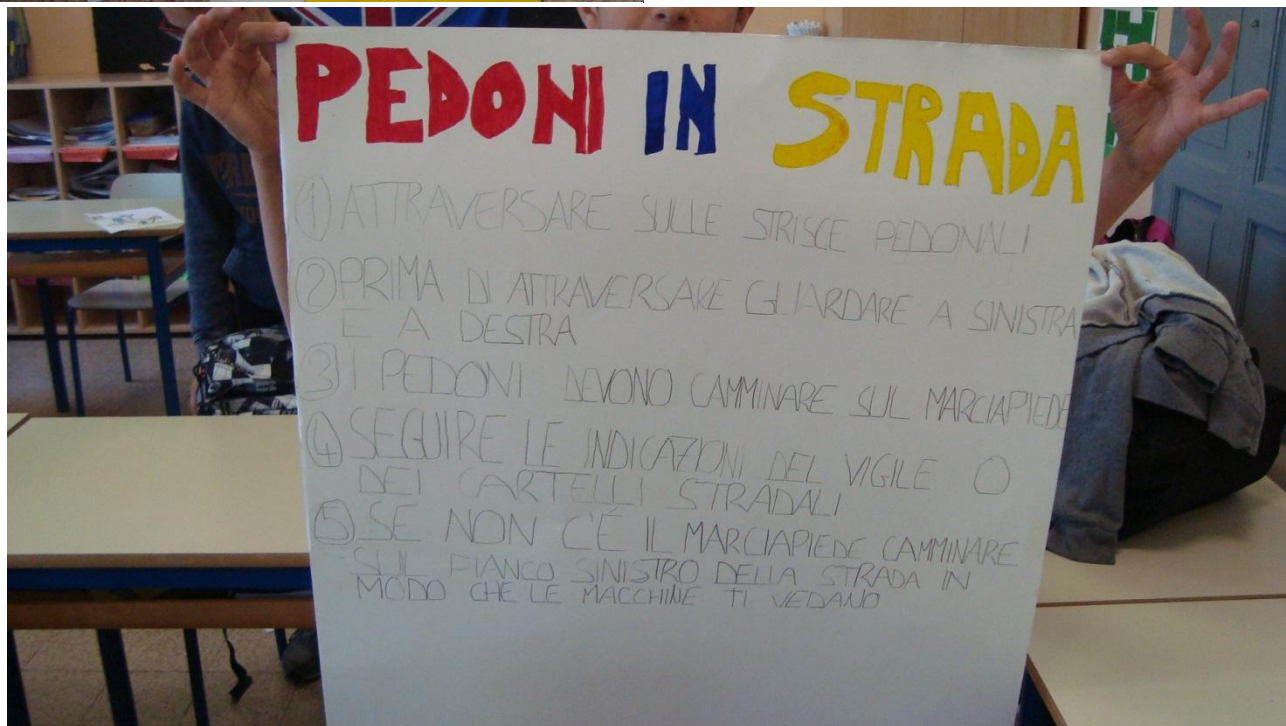 PEDONI IN STRADA
1 ATTRAVERSARE SULLE STRISCE PEDONALI
2 PRIMA DI ATTRAVERSARE GUARDARE A SINISTRA
E A DESTRA
3) I PEDONI DEVONO CAMMINARE SUL MARCIAPIEDE
4 SEGUIRE LE INDICAZIONI DEL VIGILE O
DEI CARTELLI STRADALI
5 SE NON C'É IL MARCIAPIEDE CAMMINARE
SUL FIANCO SINISTRO DELLA STRADA IN
MODO CHE LE MACCHINE TI VEDANO